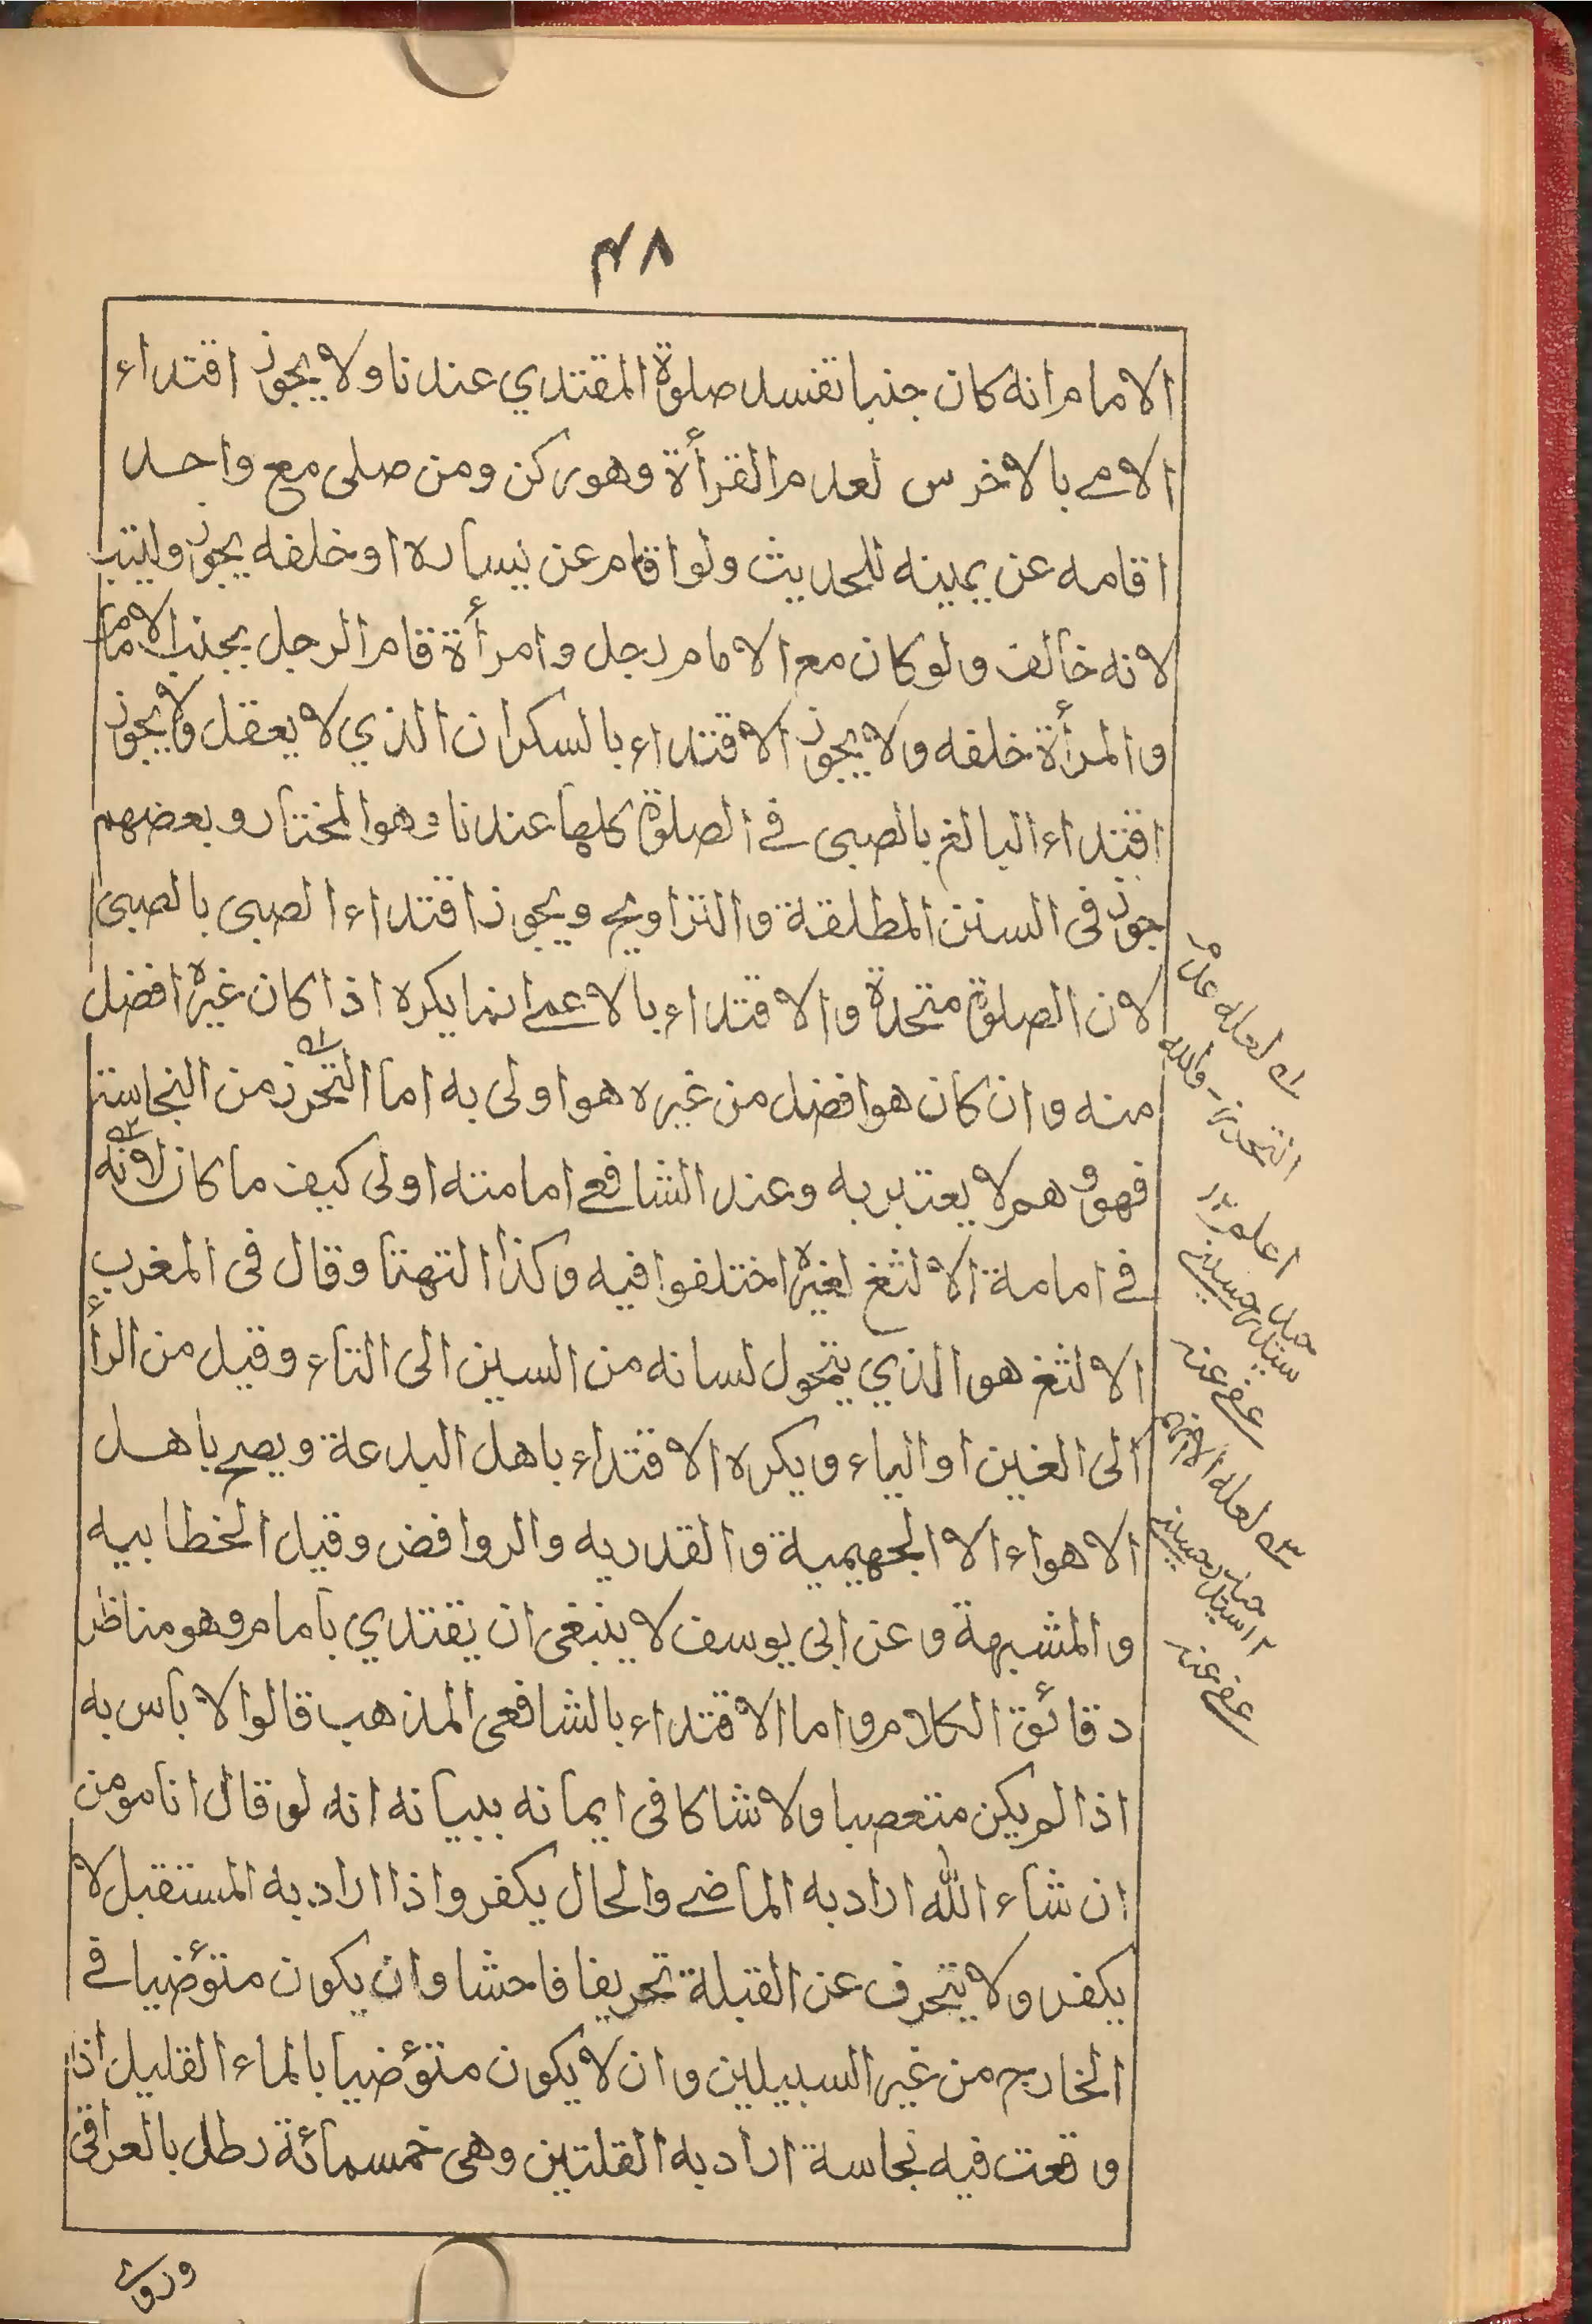 ۴۸
الامام انه كان جنبا تفسد صلوة المقتدي عندنا ولا يجوز اقتداء
الامے بالاخرس لعدم القرأة وهو ركن ومن صلى مع واحد
اقامه عن يمينه للحديث ولو اقام عن يساره او خلفه يجوز وليتب
لانه خالف ولو كان مع الامام رجل وامرأة قام الرجل بجنب الامام
والمرأة خلفه ولا يجوز الاقتداء بالسكران الذي لا يعقل ولا يجوز
اقتداء البالغ بالصبى فے الصلوة كلها عندنا وهو المختار وبعضهم
جوز فى السنن المطلقة والتراويح ويجوز اقتداء الصبى بالصبى
لان الصلوة متحدة والاقتداء بالاعمے انما يكره اذا كان غيره افضل
منه وان كان هو افضل من غيره هو اولى به اما التحرز ۱؎ من النجاسة
فهو وهم لا يعتبر به وعند الشافعے امامته اولى كيف ما كان لانه ۲؎
فے امامة الالثغ لغيره اختلفوا فيه وكذا التهتا وقال فى المغرب
الالثغ هو الذي يتحول لسانه من السين الى التاء وقيل من الرأ
الى الغين او الياء ويكره الاقتداء باهل البدعة ويصح باهل
الاهواء الا الجهيمية والقدريه والروافض وقيل الخطابيه
والمشبهة وعن ابى يوسف لا ينبغى ان يقتدي بامام وهو مناظر
دقائق الكلام واما الاقتداء بالشافعى المذهب قالوا لا باس به
اذا لم يكن متعصبا ولا شاكا فى ايمانه ببيانه انه لو قال انا مومن
ان شاء الله اراد به الماضے والحال يكفر واذا اراد به المستقبل لا
يكفر ولا يتحرف عن القبلة تحريفا فاحشا وان يكون متوٴضيا فے
الخارج من غير السبيلين وان لا يكون متوٴضيا بالماء القليل اذا
وقعت فيه نجاسة اراد به القلتين وهى خمسمائة رطل بالعراقى
۱؎ لعله عدم
التحرز - والله
اعلم ۱۲
سيد حسين
عفى عنه
۲؎ لعله
۱۲ سيد حسين
عفى عنه